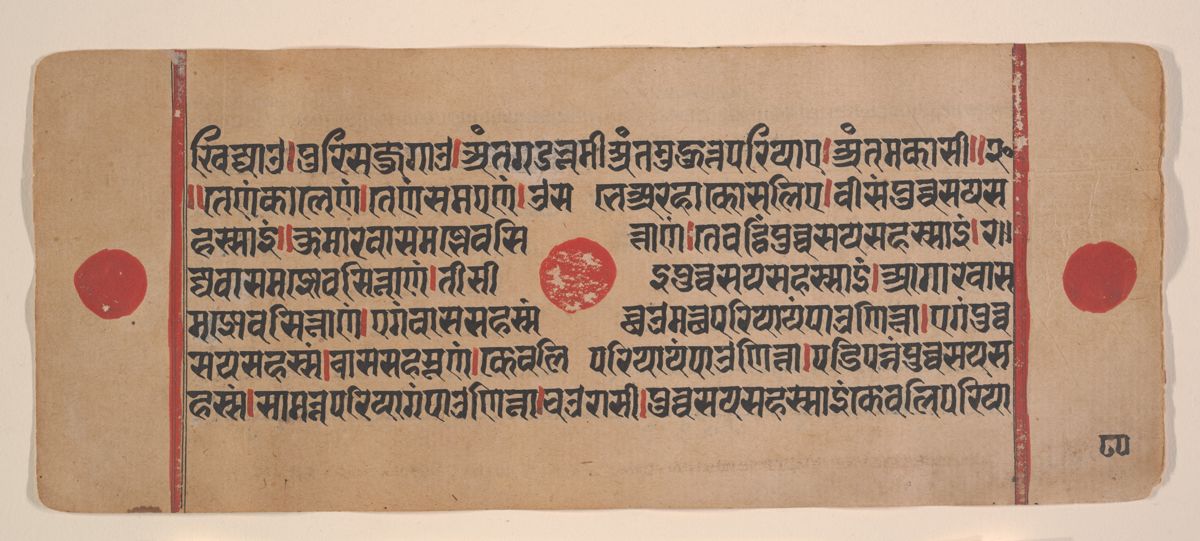 खिद्याउ।पुरिसजुगाउ।अंतगडन्नमीअंतमुहुत्तपरियाए।अंतमकासी॥२०
॥तेणंकालेणं।तेणंसमएणं।उस लेअरहाकोसलिए।वीसंपुव्वसयस
हस्साइं॥कुमारवासमाज्ञेवसि त्ताणं।तेवट्ठिंपुव्वसयसहस्साइं।र॥
द्यवासमाज्ञेवसित्ताणं।तेसी इंपुव्वसयसहस्साइं।आगारवास
माज्ञेवसित्ताणं।एगंवाससहस्सं छउमत्थपरियायंपाउणित्ता।एगंपुव्व
सयसहस्स।वाससहस्सूणं।केवलि परियायंपाउणित्ता।पडिपुन्नंपुव्वसयस
हस्सं।सामन्नपरियागंपाउणित्ता।चउरासी।पुव्वसयसहस्साइंकेवलिपरिया
८५